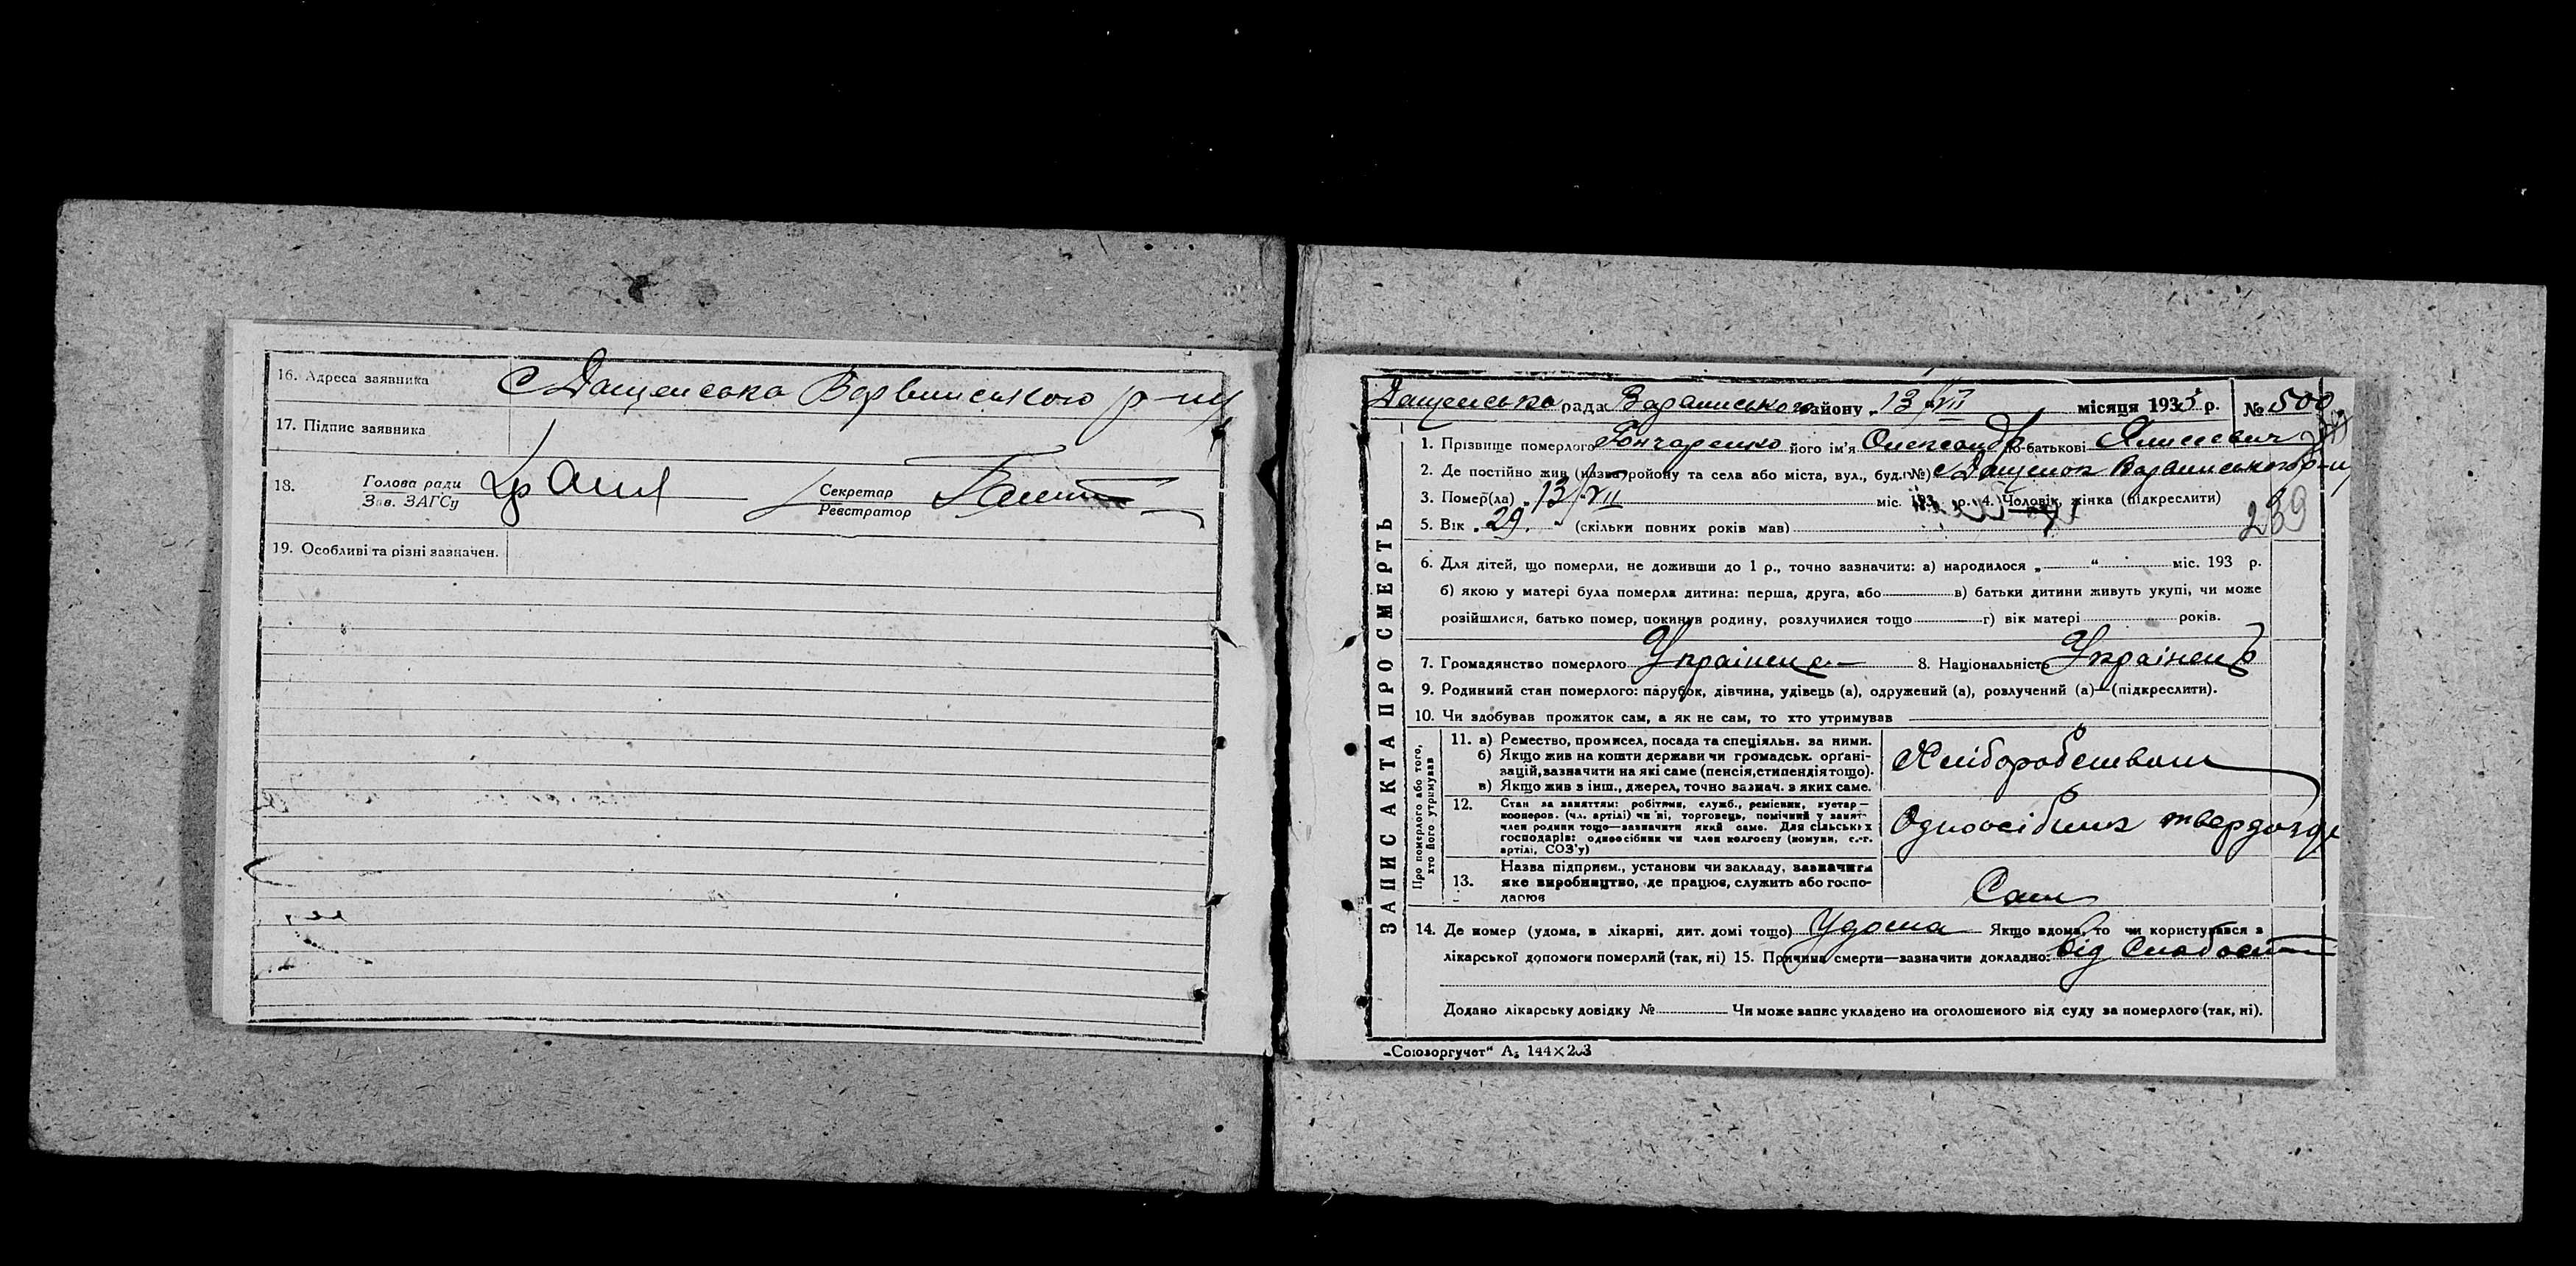 16. Адреса заявника с Дащенська Варвинського р-ну
17. Підпис заявника
18. Голова ради Зав. ЗАГСу Секретар Реєстратор
19. Особливі та різні зазначен.
ЗАПИС АКТА ПРО СМЕРТЬ
Дащенсько рада Варвинського району „ 13 VII місяця 1933 р. № 500
1. Прізвище померлого Гончаренко його ім'я Олександр по-батькові
2. Де постійно жив (назва ройону та села або міста, вул., буд. №) с Дащенки Варвинського р-ну
3. Помер(ла) „ 13/VII міс. 193 р. 4. Чоловік, жінка (підкреслити)
5. Вік „ 29. “ (скільки повних років мав) 239
6. Для дітей, що померли, не доживши до 1 р., точно зазначити: а) народилося „ “ міс. 193 р.
б) якою у матері була померла дитина: перша, друга, або в) батьки дитини живуть укупі, чи може
розійшлися, батько помер, покинув родину, розлучилися тощо г) вік матері років.
7. Громадянство померлого Українец 8. Національність Українець
9. Родинний стан померлого: парубок, дівчина, удівець (а), одружений (а), розлучений (а)—(підкреслити).
10. Чи здобував прожиток сам, а як не сам, то хто утримував
Про померлого або того, хто його утримував
11. а) Ремество, промисел, посада та спеціяльн. за ними.
б) Якщо жив на кошти держави чи громадськ. органі-
зацій, зазначити на які саме (пенсія, стипендія тощо).
в) Якщо жив з інш., джерел, точно зазнач. з яких саме.
Хліборобством
12. Стан за заняттям: робітник, служб., ремісник, кустар—
кооперов. (чл. артілі) чи ні, торговець, помічний у занят-
член родини тощо—зазначити який саме. Для сільських
господарів: одноосібник чи член колгоспу (комуни, с.-г.
артілі, СОЗ'у)
Одноосібник твердозд
13. Назва підприєм., установи чи закладу, зазначити
яке виробництво, де працює, служить або госпо-
дарює
Сам
14. Де помер (удома, в лікарні, дит. домі тощо) Удома Якщо вдома, то чи користувався з
лікарської допомоги померлий (так, ні) 15. Причина смерти—зазначити докладно: від слабості
Додано лікарську довідку № Чи може запис укладено на оголошеного від суду за померлого (так, ні).
„Союзоргучет“ А₅ 144×203